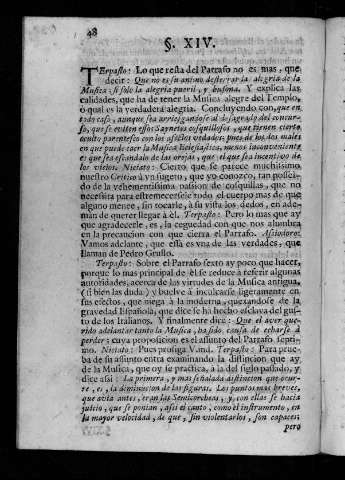 48
§. XIV.
Terpasto: Lo que resta del Parrafo no es mas, que
decir: Que no es su animo desterrar la alegria de la
Musica, si solo la alegria pueril, y bufona. Y explica las
calidades, que ha de tener la Musica alegre del Templo,
ò qual es la verdadera alegria. Concluyendo con, que en
todo caso, aunque sea arriesgandose al desagrado del concur-
so, que se eviten essos Saynetes cosquillosos, que tienen cierto
oculto parentesco con los assètes vedados; pues de los dos males
en que puede caer la Musica Eclesiastica, menos inconveniente
es que sea escandalo de las orejas, que el que sea incentivo de
los vicios. Niclato: Cierto que se parece muchissimo
nuestro Critico à vn sugeto, que yo conozco, tan posseì-
do de la vehementissima passion de cosquillas, que no
necessita para estremecersele todo el cuerpo mas de que
alguno menee, sin tocarle, à su vista los dedos, en ade-
màn de querer llegar à èl. Terpasto: Pero lo mas que ay
que agradecerle, es, la ceguedad con que nos alumbra
en la precaucion con que cierra el Parrafo. Assiolore:
Vamos adelante, que essa es vna de las verdades, que
llaman de Pedro Grullo.
Terpasto: Sobre el Parrafo sexto ay poco que hacer,
porque lo mas principal de èl se reduce à referir algunas
autoridades, acerca de las virtudes de la Musica antigua,
(si bien las duda) y buelve à inculcarse ligeramente en
sus efectos, que niega à la moderna, quexandose de la
gravedad Española, que dice se ha hecho esclava del gus-
to de los Italianos. Y finalmente dice: Que el aver que-
rido adelantar tanto la Musica, ha sido causa de echarse à
perder; cuya proposicion es el assunto del Parrafo septi-
mo. Niciato: Pues prosiga Vmd. Terpasto: Para prue-
ba de su assunto entra examinando la distincion que ay
de la Musica, que oy se practica, à la del siglo passado, y
dice assi: La primera, y mas señalada distincion que ocur-
re, es, la deminucion de las figuras. Los puntos mas breves,
que avia antes, eran las Semicorcheas, y con ellas se hacia
juicio, que se ponian, assi el canto, como el instrumento, en
la mayor velocidad, de que, sin violentarlos, son capaces:
pero